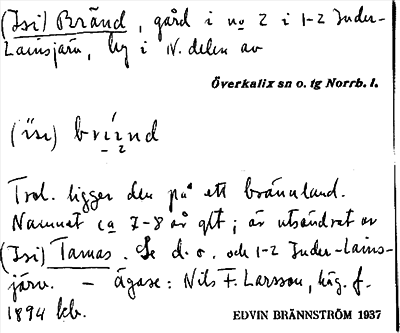 (Isi) Bränd, gård i no 2 i 1-2 Inder-
Lainsjärv, byg i N. delen av
Överkalix sn o. tg Norrb. l.
(ìsi) brínd
Trol. ligger den på ett brännland.
Namnet ca 7-8 år glt; är utsöndret av
(Isi) Tamas. Se d. o. och 1-2 Inder-Lains-
järv. – Ägare: Nils F. Larsson, häg. f.
1894 kb.
EDVIN BRÄNNSTRÖM 1937